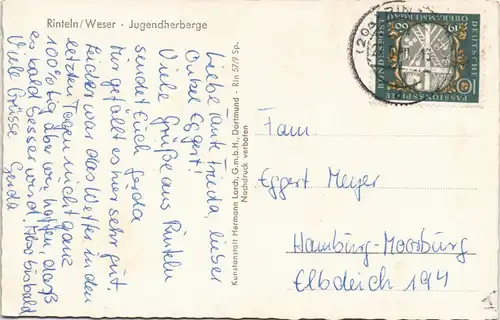 Rinteln/Weser · Jugendherberge
Liebe Tante Frieda, lieber
Onkel Eggert!
Viele Grüße aus Rinteln
sendet Euch Gerda
Mir gefällt es hier sehr gut.
Leider war das Wetter in den
letzten Tagen nicht ganz
100%ig aber wir hoffen, daß
es bald besser wird. Also bis bald
Viele Grüsse
Gerda
Kunstanstalt Hermann Lorch, G.m.b.H., Dortmund - Rin 57/9 Sp.
Nachdruck verboten
DEUTSCHE BUNDESPOST
PASSIONSSPIELE
OBERAMMERGAU
1960
10
Fam.
Eggert Meyer
Hamburg-Moorburg
Elbdeich 194